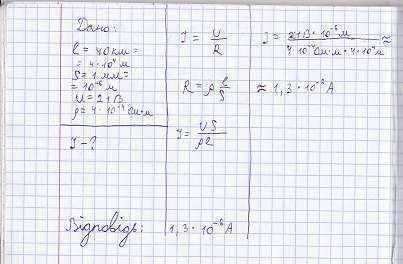 Дано:
ℓ = 40 км =
= 4·10⁴ м
S = 1 мм² =
= 10⁻⁶ м
U = 2+В
ρ = 4·10⁻⁷ Ом·м
I - ?
I = U/R
R = ρ ℓ/S
I = US/ρℓ
I = 21В·10⁻⁶ м / 4·10⁻⁷ Ом·м·4·10⁴ м ≈
≈ 1,3·10⁻² А
Відповідь: 1,3·10⁻⁶ А